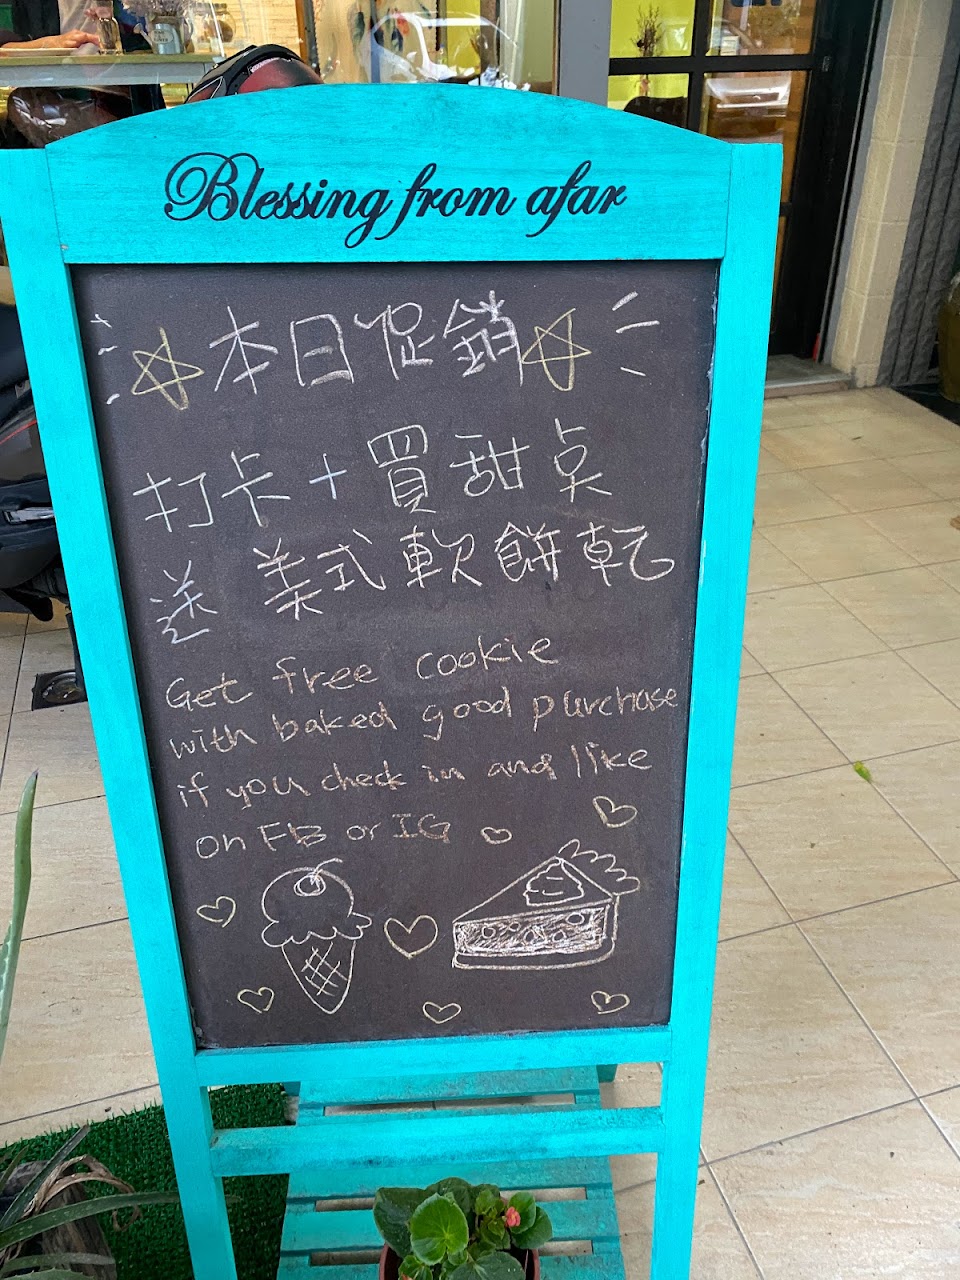 Blessing from afar
本日促銷
打卡+買甜点
送美式軟餅乾
Get free cookie
with baked good purchase
if you check in and like
on FB or IG